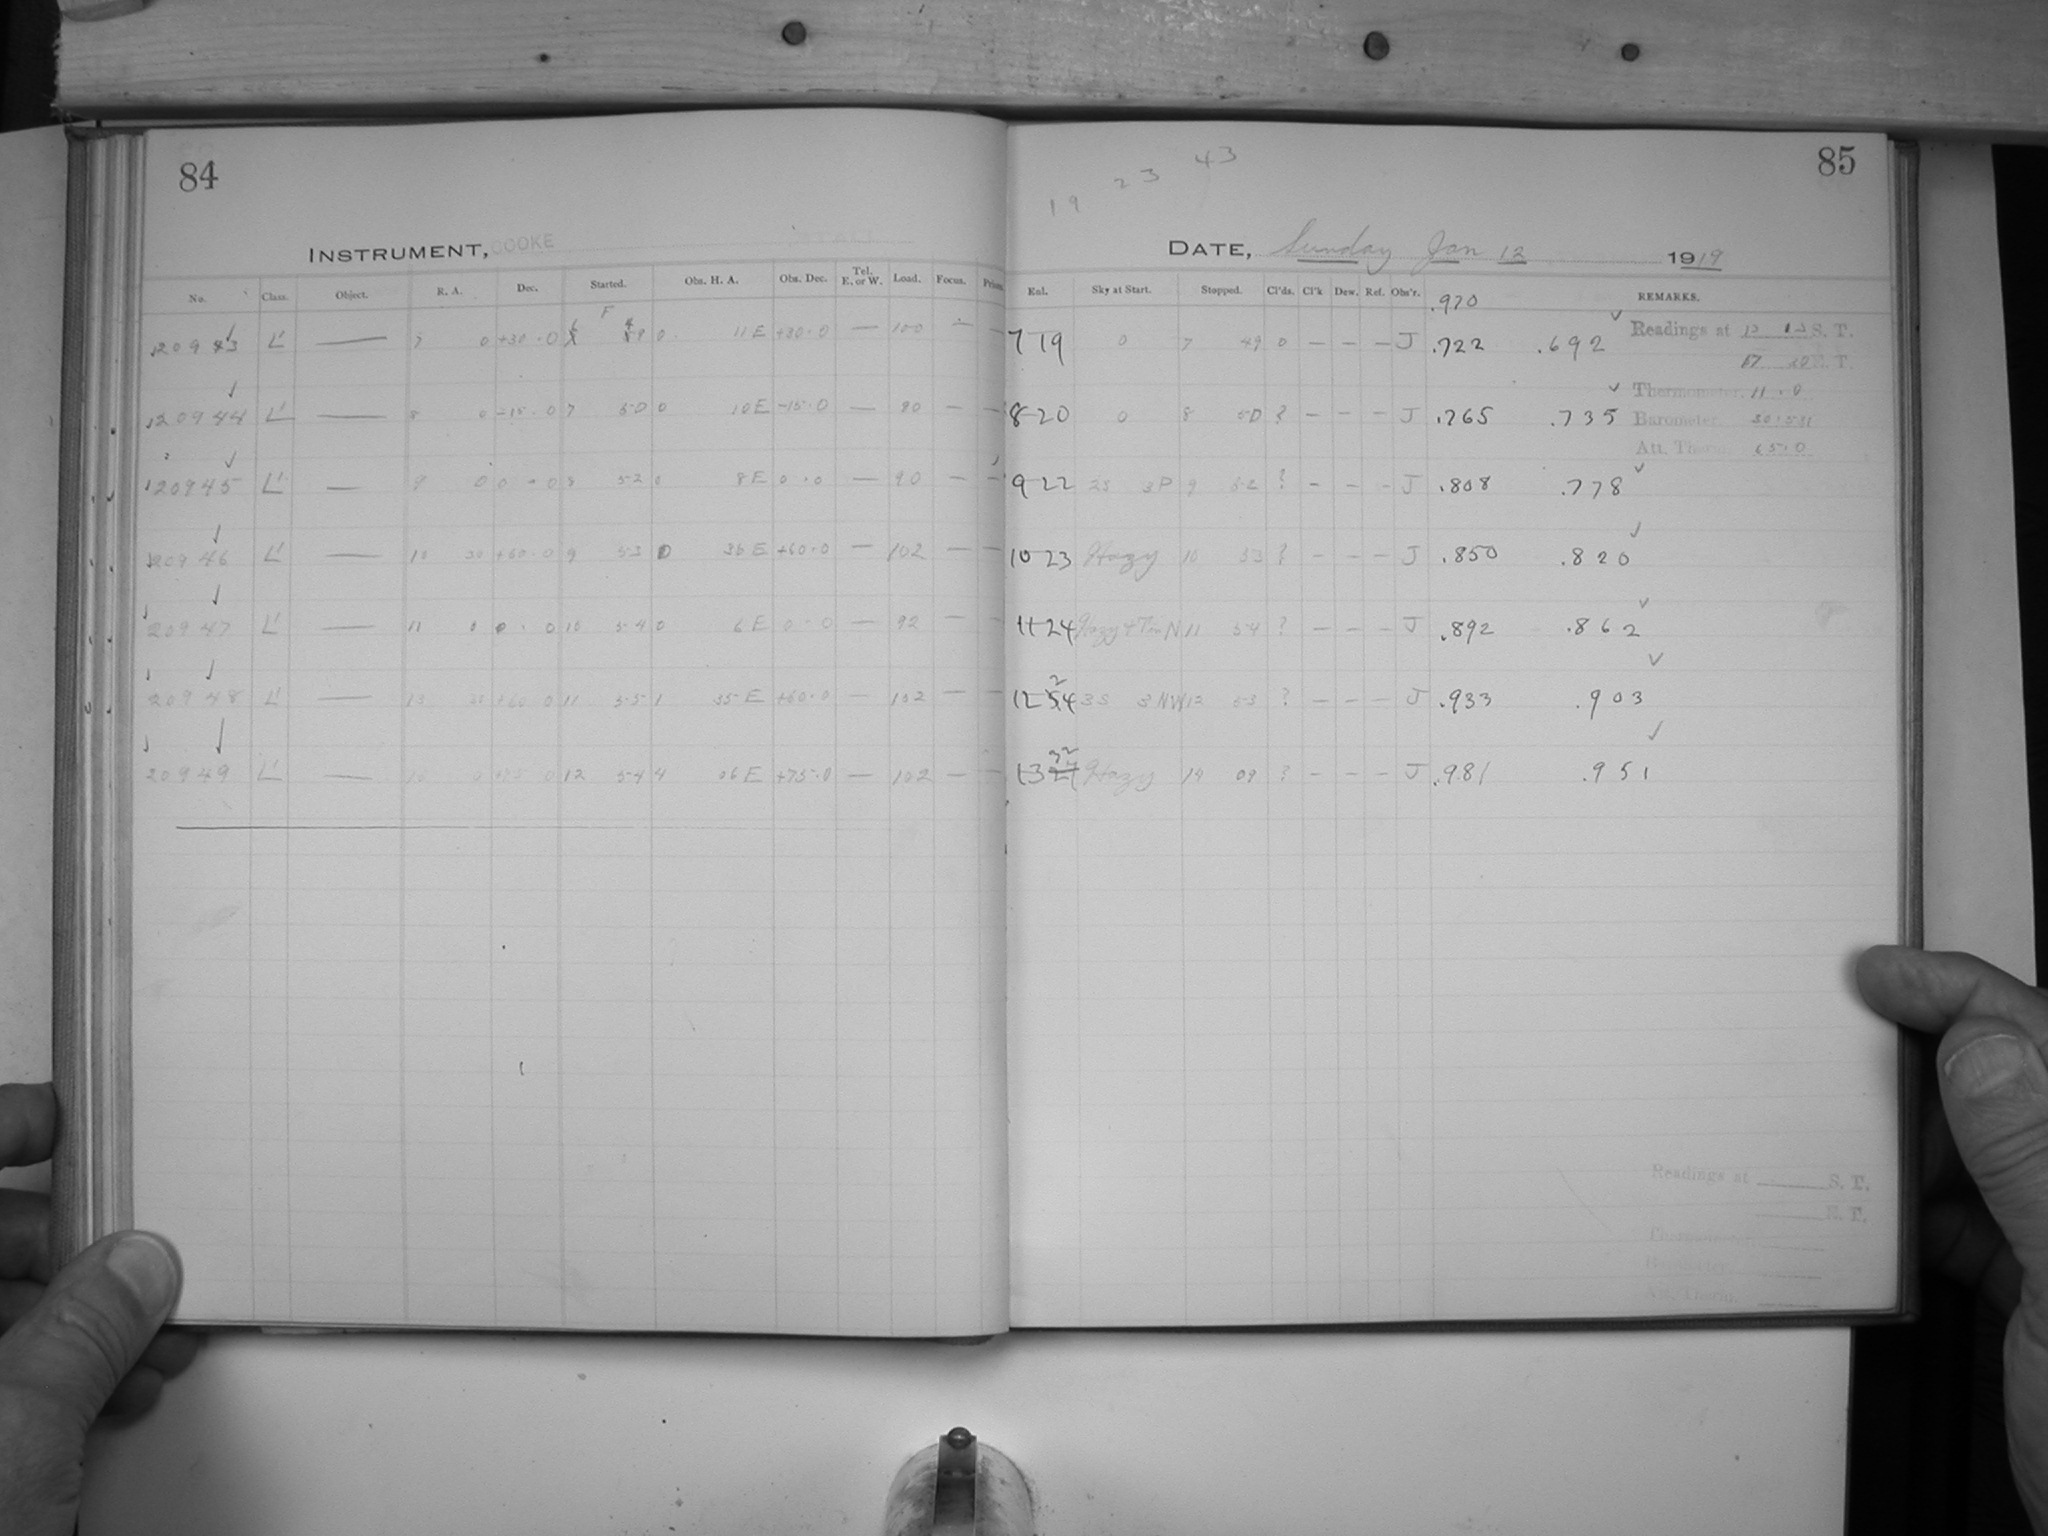 84
INSTRUMENT, COOKE
No. Class. Object. R. A. Dec. Started. Obs. H. A. Obs. Dec. Tel. E. or W. Load. Focus. Prism.
F
20943 L' — 7 0 +30.0 6 49 0 11 E +30.0 — 100 — —
20944 L' — 8 0 -15.0 7 50 0 10 E -15.0 — 90 — —
20945 L' — 9 0 0.0 8 52 0 8 E 0.0 — 90 — —
20946 L' — 10 30 +60.0 9 53 0 36 E +60.0 — 102 — —
20947 L' — 11 0 0.0 10 54 0 6 E 0.0 — 92 — —
20948 L' — 13 30 +60 0 11 55 1 35 E +60.0 — 102 — —
20949 L' — 0 +75 0 12 54 4 06 E +75.0 — 102 — —
85
19 23 43
DATE, Sunday Jan 12 1919
Exl. Sky at Start. Stopped. Cl'ds. Cl'k Dew. Ref. Obs'r. REMARKS.
.970
7 19 0 7 49 0 — — — J .722 .692 ✓ Readings at S. T.
8-20 0 8 50 ? — — — J .765 .735 ✓
Thermometer. 11.0
Barometer. 30.531
Att. Therm. 65.0
9-22 2S 3P 9 52 ? — — — J .808 .778 ✓
10-23 Hazy 10 53 ? — — — J .850 .820 ✓
11-24 Hazy 11 54 ? — — — J .892 .862 ✓
12 24 3S 3NW 12 53 ? — — — J .933 .903 ✓
13 32 Hazy 14 09 ? — — — J .981 .951 ✓
Readings at S. T.
E. T.
Thermometer.
Barometer.
Att. Therm.